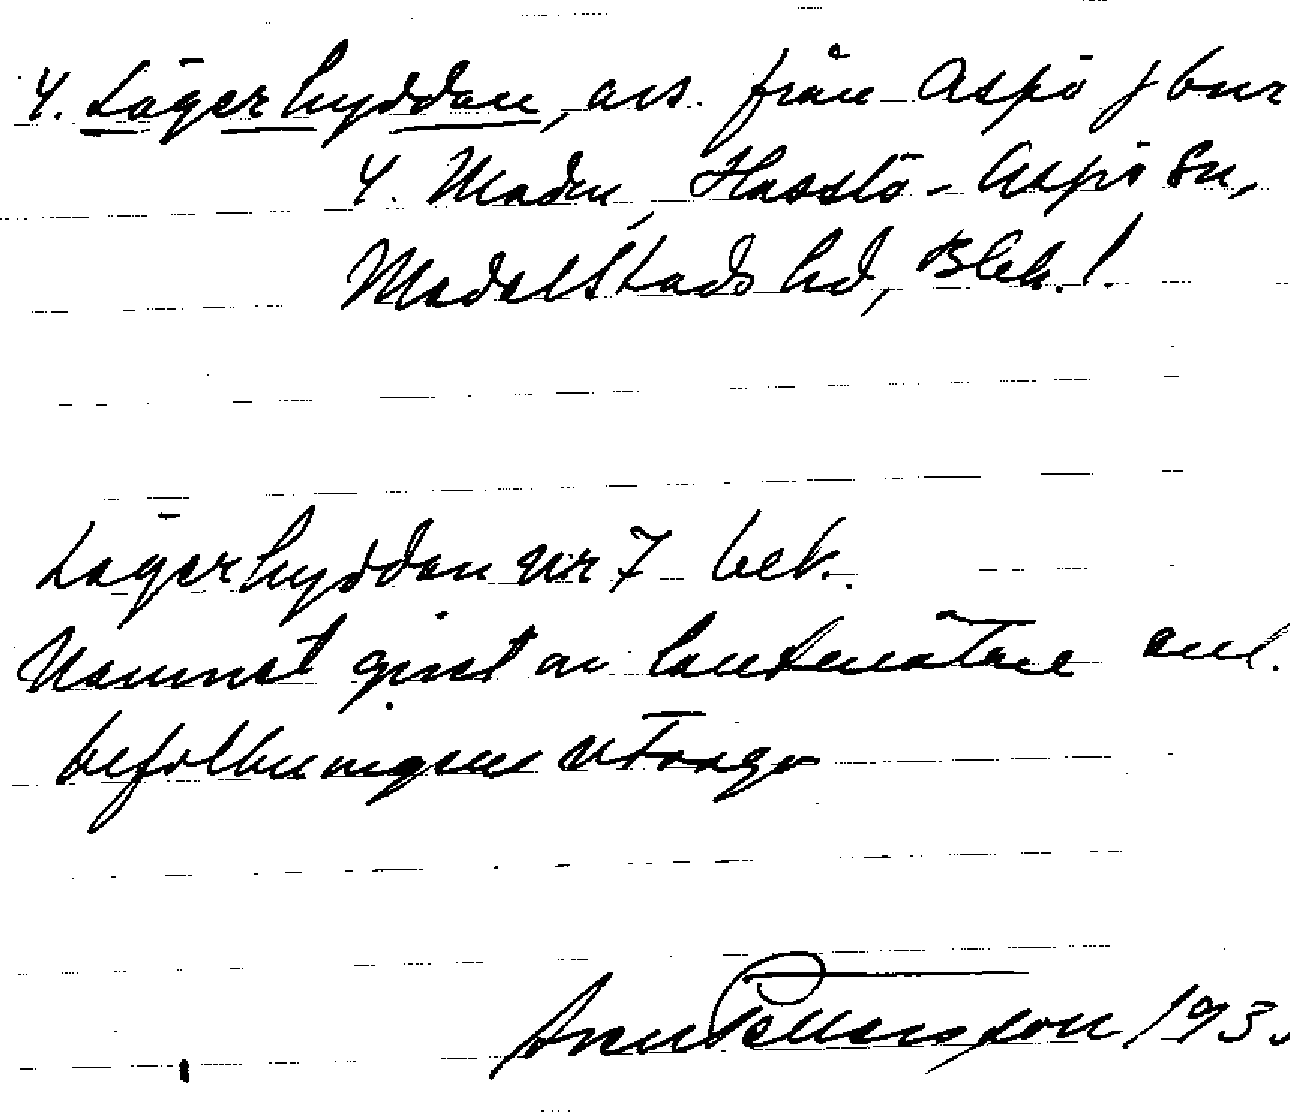 4. Lägerhyddan, avs. från Aspö f bur
4. Maden, Hasslö-Aspö sn,
Medelstads hd, Blek. l.
Lägerhyddan nr 7 bek.
Namnet givet av lantmätare enl.
befolkningens utsago
Pettersson 193